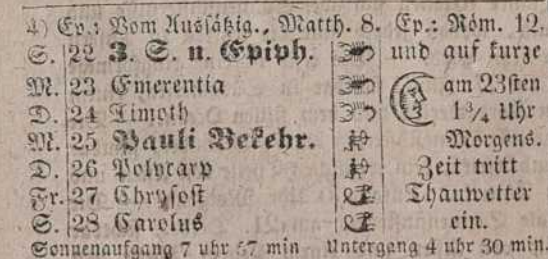 4) Ev.: Vom Aussätzig., Matth. 8. Ep.: Röm. 12.
S. 22 3. S. n. Epiph. und auf kurze
M. 23 Emerentia am 23sten
D. 24 Timoth 1¾ Uhr
M. 25 Pauli Bekehr. Morgens.
D. 26 Polycarp Zeit tritt
Fr. 27 Chrysost Thauwetter
S. 28 Carolus ein.
Sonnenaufgang 7 uhr 57 min Untergang 4 uhr 30 min.